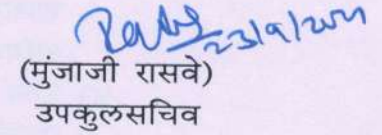 23/9/2021
(मुंजाजी रासवे)
उपकुलसचिव